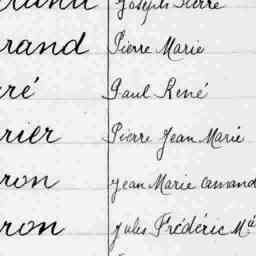 Joseph Pierre
rand Pierre Marie
ré Paul René
rier Pierre Jean Marie
ron Jean Marie Constand
ron Jules Frédéric Mie